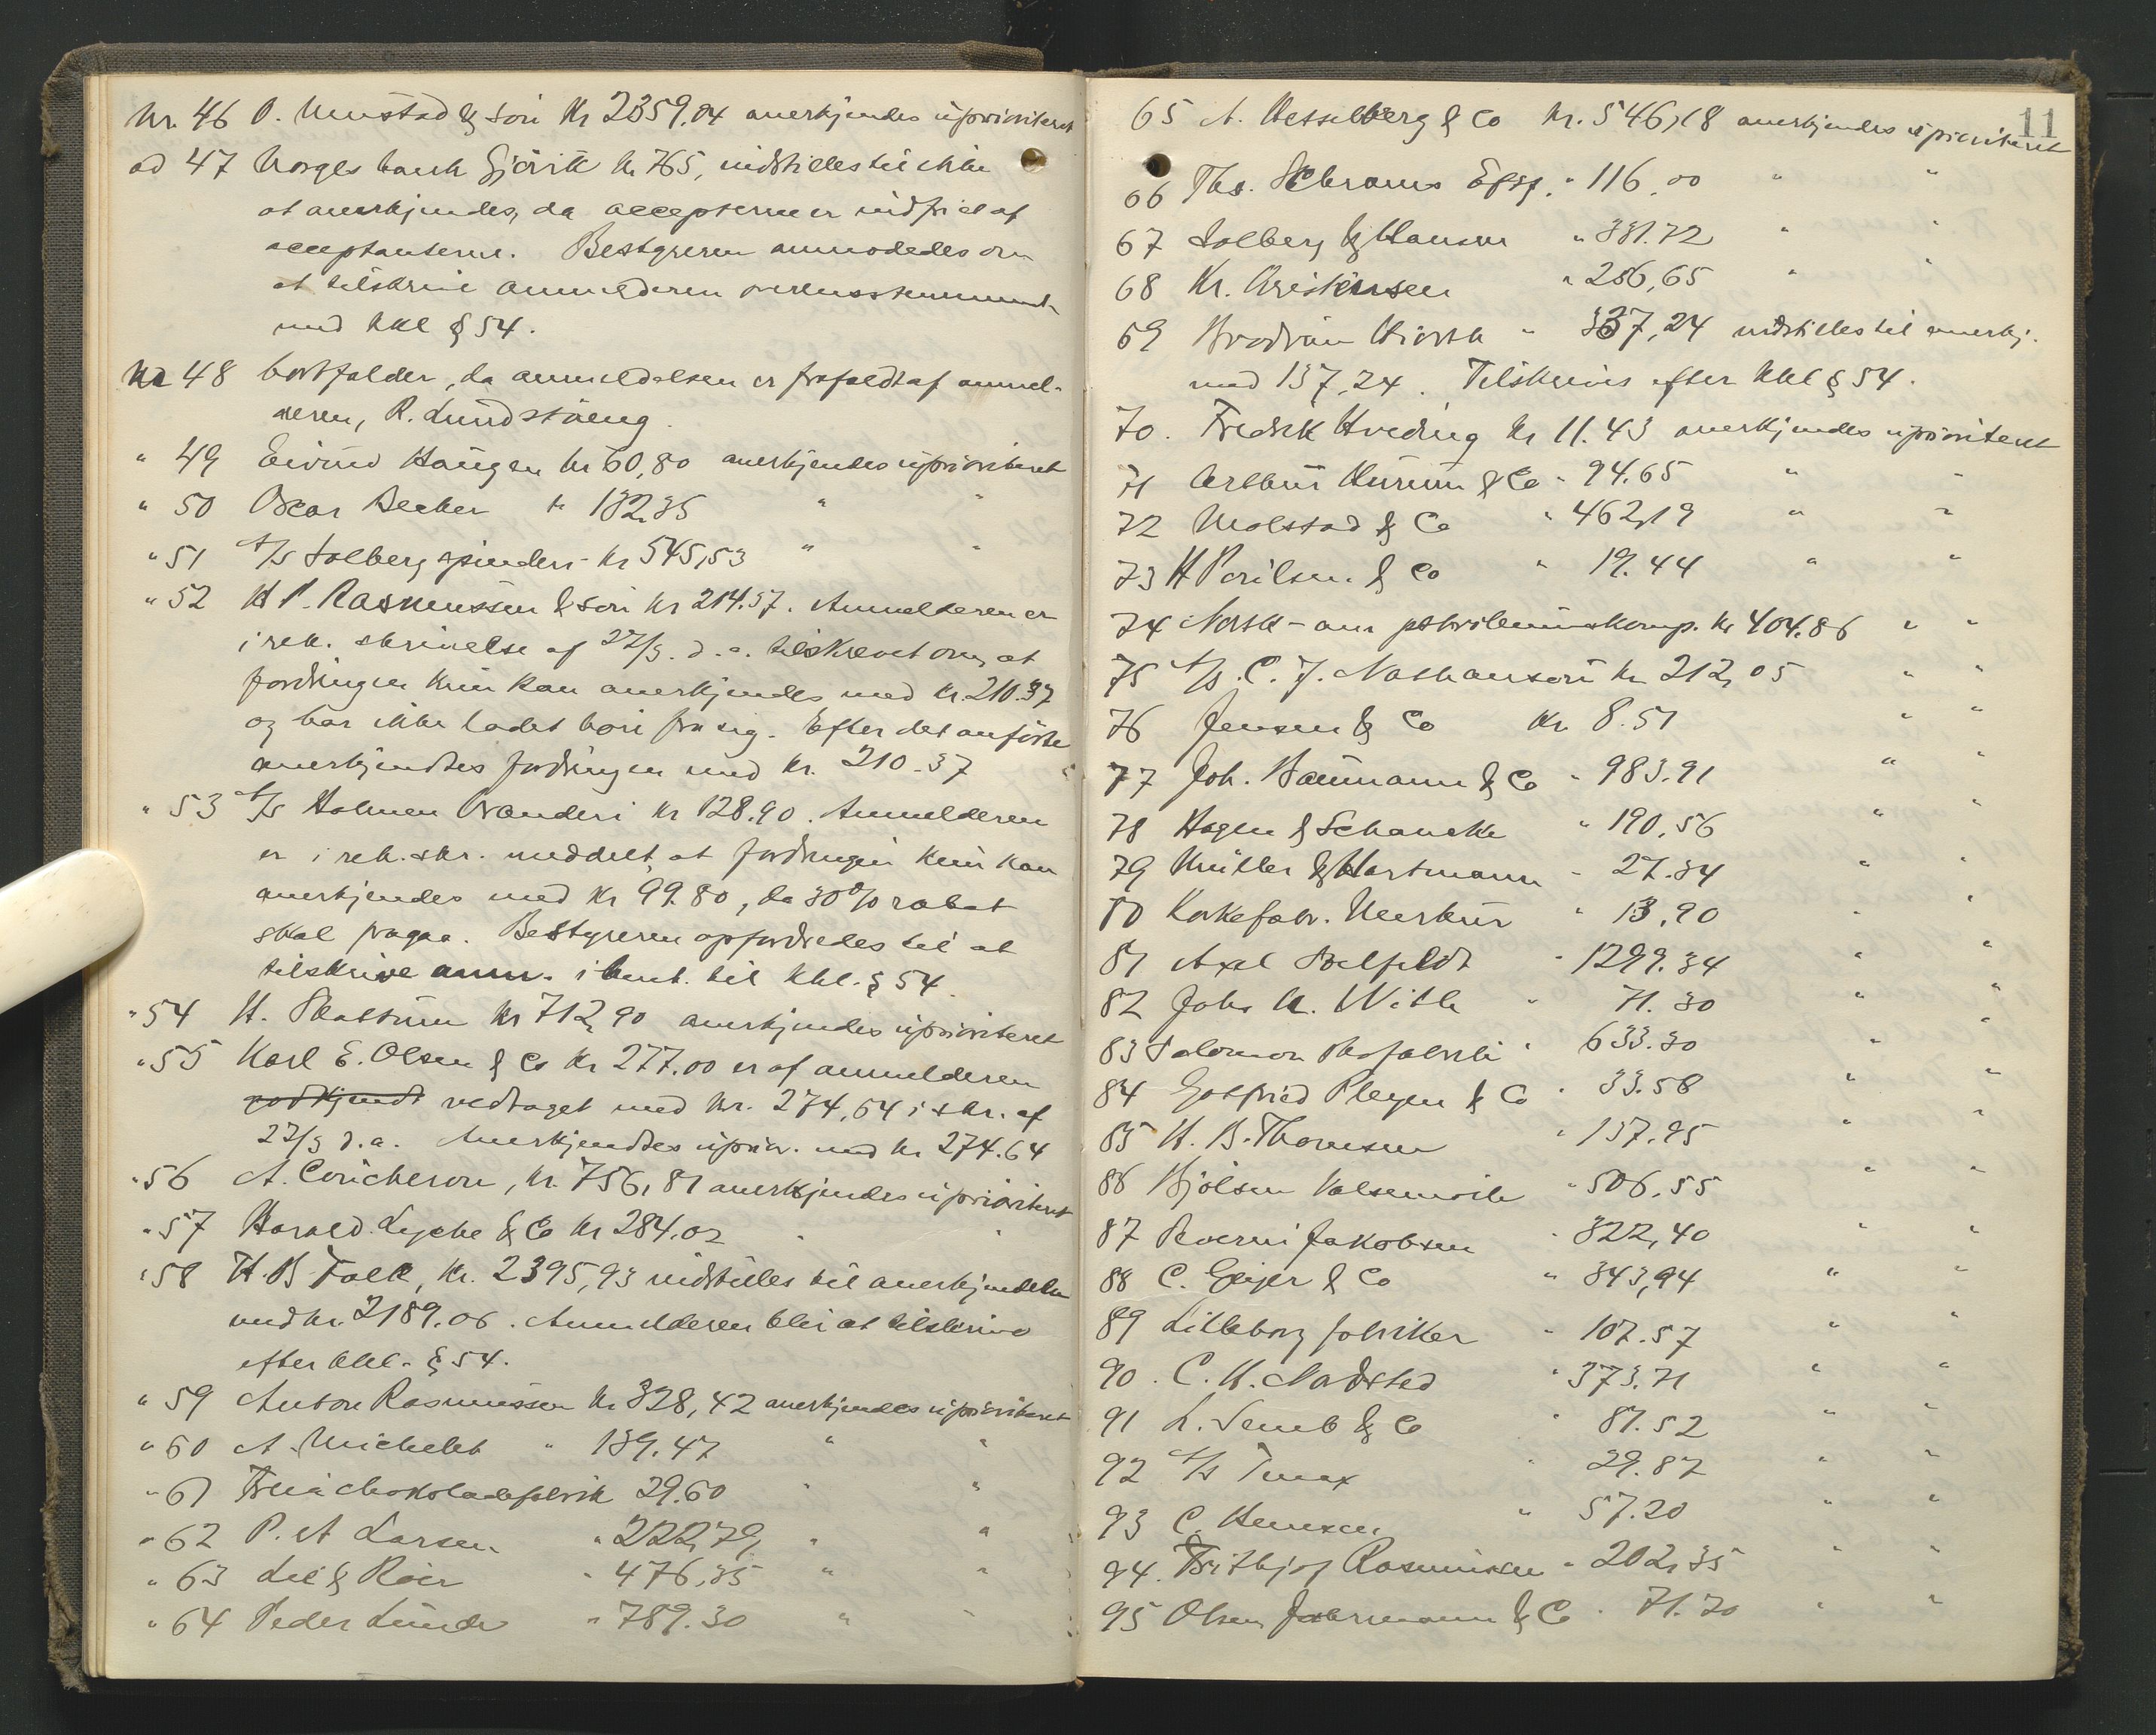 Nr. 46 O. Mustad & Søn Kr 2359.04 anerkjendes uprioriteret
ad 47 Norges bank Gjøvik kr 765, indstilles til ikke
at anerkjendes, da accepterne er indfriet af
acceptanterne. Bestyreren anmodedes om
at tilskrive anmelderen overensstemmende
med kkl § 54.
Nr 48 bortfalder, da anmeldelsen er frafaldt af anmel-
deren, R. Lundstäeng.
" 49 Eivind Haugen kr 60,80 anerkjendes uprioriteret
" 50 Oscar Becker kr 132.35 " "
" 51 A/S Solberg spinderi kr 545,53 " "
" 52 H P. Rasmussen & søn kr 214.57. Anmelderen er
i rek. skrivelse af 22/3. d. a. tilskrevet om, at
fordringen kun kan anerkjendes med kr. 210.37
og har ikke ladet høre fra sig. Efter det anførte
anerkjendtes fordringen med kr. 210.37
" 53 A/S Holmen Brænderi kr 128.90. Anmelderen
er i rek. skr. meddelt, at fordringen kun kan
anerkjendes med kr 99.80, da 30% rabat
skal fragaa. Bestyreren opfordredes til at
tilskrive anm. i henh. til kkl. § 54.
" 54 H. Plattum kr 712,90 anerkjendes uprioriteret
" 55 Karl E. Olsen & Co kr 277.00 er af anmelderen
godkjendt vedtaget med kr. 274,64 i skr. af
22/3 d.a. Anerkjendtes uprior. med kr 274.64
" 56 A. Coucheron, kr. 756,81 anerkjendes uprioriteret
" 57 Harald Lyche & Co kr 284.02 " "
" 58 H. B. Falk, kr. 2395,93 indstilles til anerkjendelse
med kr. 2189.06. Anmelderen blir at tilskrive
efter kkl. § 54.
" 59 Anton Rasmussen kr 328,42 anerkjendes uprioriteret
" 60 A. Michelet " 139.47 " "
" 61 Freia chokoladefabrik 29.60 " "
" 62 P. A Larsen " 222,79 " "
" 63 Lie & Røer " 476,35 " "
" 64 Peder Lunde " 789.30 " "
11
65 A. Hesselberg & Co kr. 546,18 anerkjendes uprioriteret
66 Ths. Schrams Eftf. " 116,00 " "
67 Solberg & Hansen " 331.72 " "
68 Kr. Kristensen " 256,65 " "
69 Brødrene Hiorth " 337,24 indstilles til anerkj.
med 137,24. Tilskrives efter kkl § 54.
70. Fredrik Hveding kr 11.43 anerkjendes uprioriteret
71 Arthur Kurum & Co " 94.65 " "
72 Molstad & Co " 462,19 " "
73 H Poulsen & Co " 19.44 " "
74 Norsk-am petroleumskomp. kr 404.86 " "
75 A/S. C. J. Nathanson kr 212,05 " "
76 Jensen & Co Kr. 8.51 " "
77 Joh. Baumann & Co " 983.91 " "
78 Hagen & Schancke " 190,56 " "
79 Müller & Hartmann " 27.34 " "
80 Korkefabr. Merkur " 13,90 " "
81 Axel Belfeldt " 1299.34 " "
82 Johs K. With " 71.30 " "
83 Salomon Skofabrik " 633.30 "
84 Gotfried Pleyen & Co " 33.58 " "
85 H. B. Thomsen " 137.95 " "
86 Bjølsen Valsemølle " 506.55 " "
87 Røerni Jakobsen " 322,40 " "
88 C. Geijer & Co " 343,94 " "
89 Lilleborg fabriker " 107.57 " "
90. C. H. Nadsted " 373.71 " "
91 L. Semb & Co " 87.52 " "
92 A/S Tmax " 29.87 " "
93 C. Hansen " 57.20 " "
94. Fritthjof Rasmussen " 202,35 " "
95 Olsen Jahrmann & Co " 71.70 " "